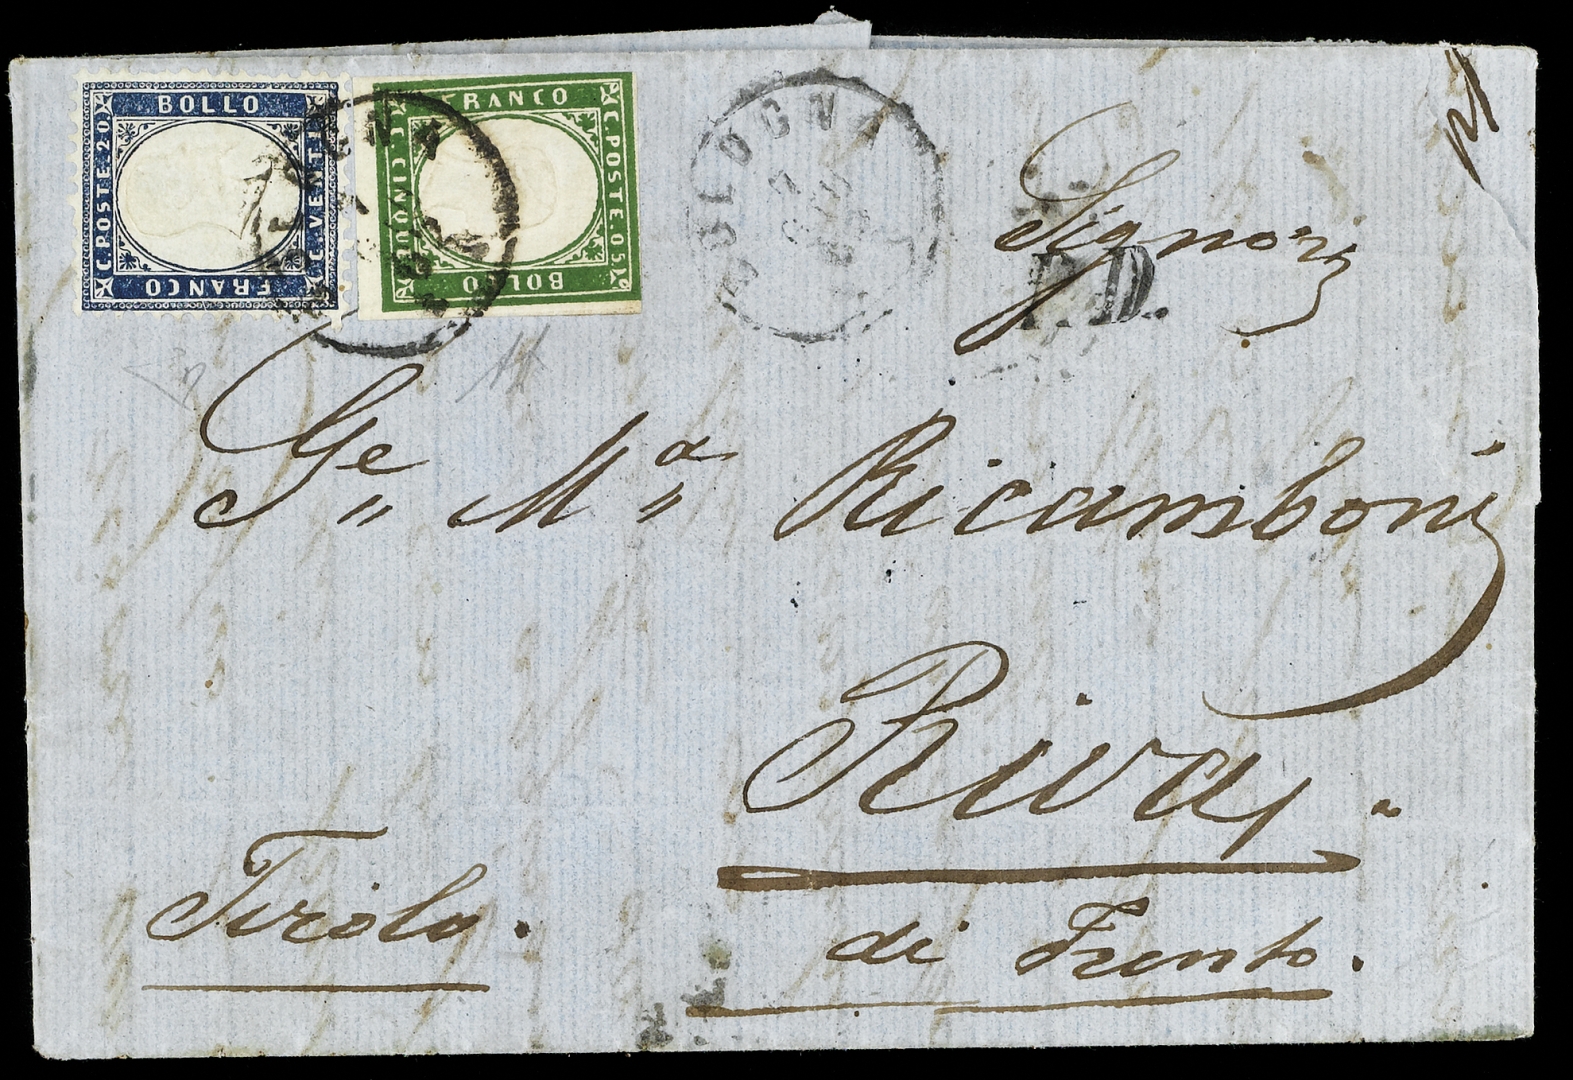 BOLLO
C. POSTE. 20
C. VENTI
FRANCO
FRANCO
C. POSTE. 05
C. CINQUE
BOLLO
BOLOGNA
BOLOGNA
P.D.
Signori
Ge " Ma " Ricamboni
Riva
di Trento.
Tirolo.